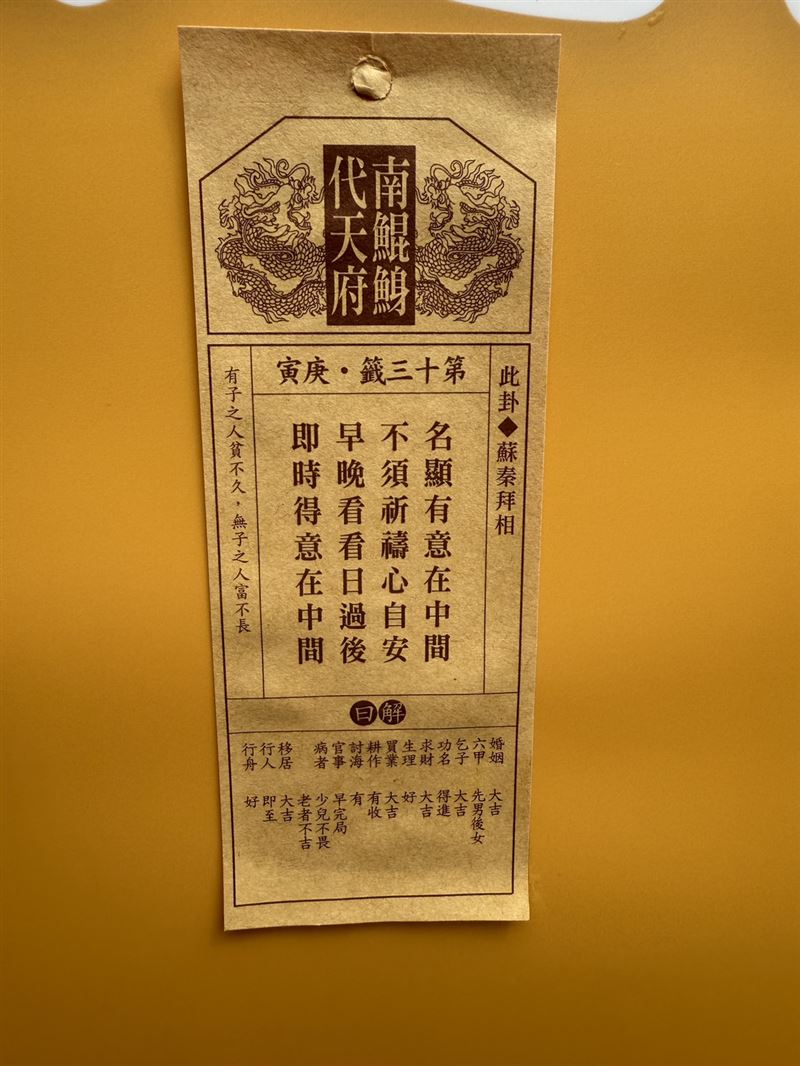 南鯤鯓
代天府
此卦◆蘇秦拜相
第十三籤・庚寅
名顯有意在中間
不須祈禱心自安
早晚看看日過後
即時得意在中間
有子之人貧不久，無子之人富不長
解曰
婚姻 大吉
六甲 先男後女
乞子 大吉
功名 得進
求財 大吉
生理 好
買業 大吉
耕作 有收
討海 有
官事 早完局
病者 少兒不畏
老者不吉
移居 大吉
行人 即至
行舟 好